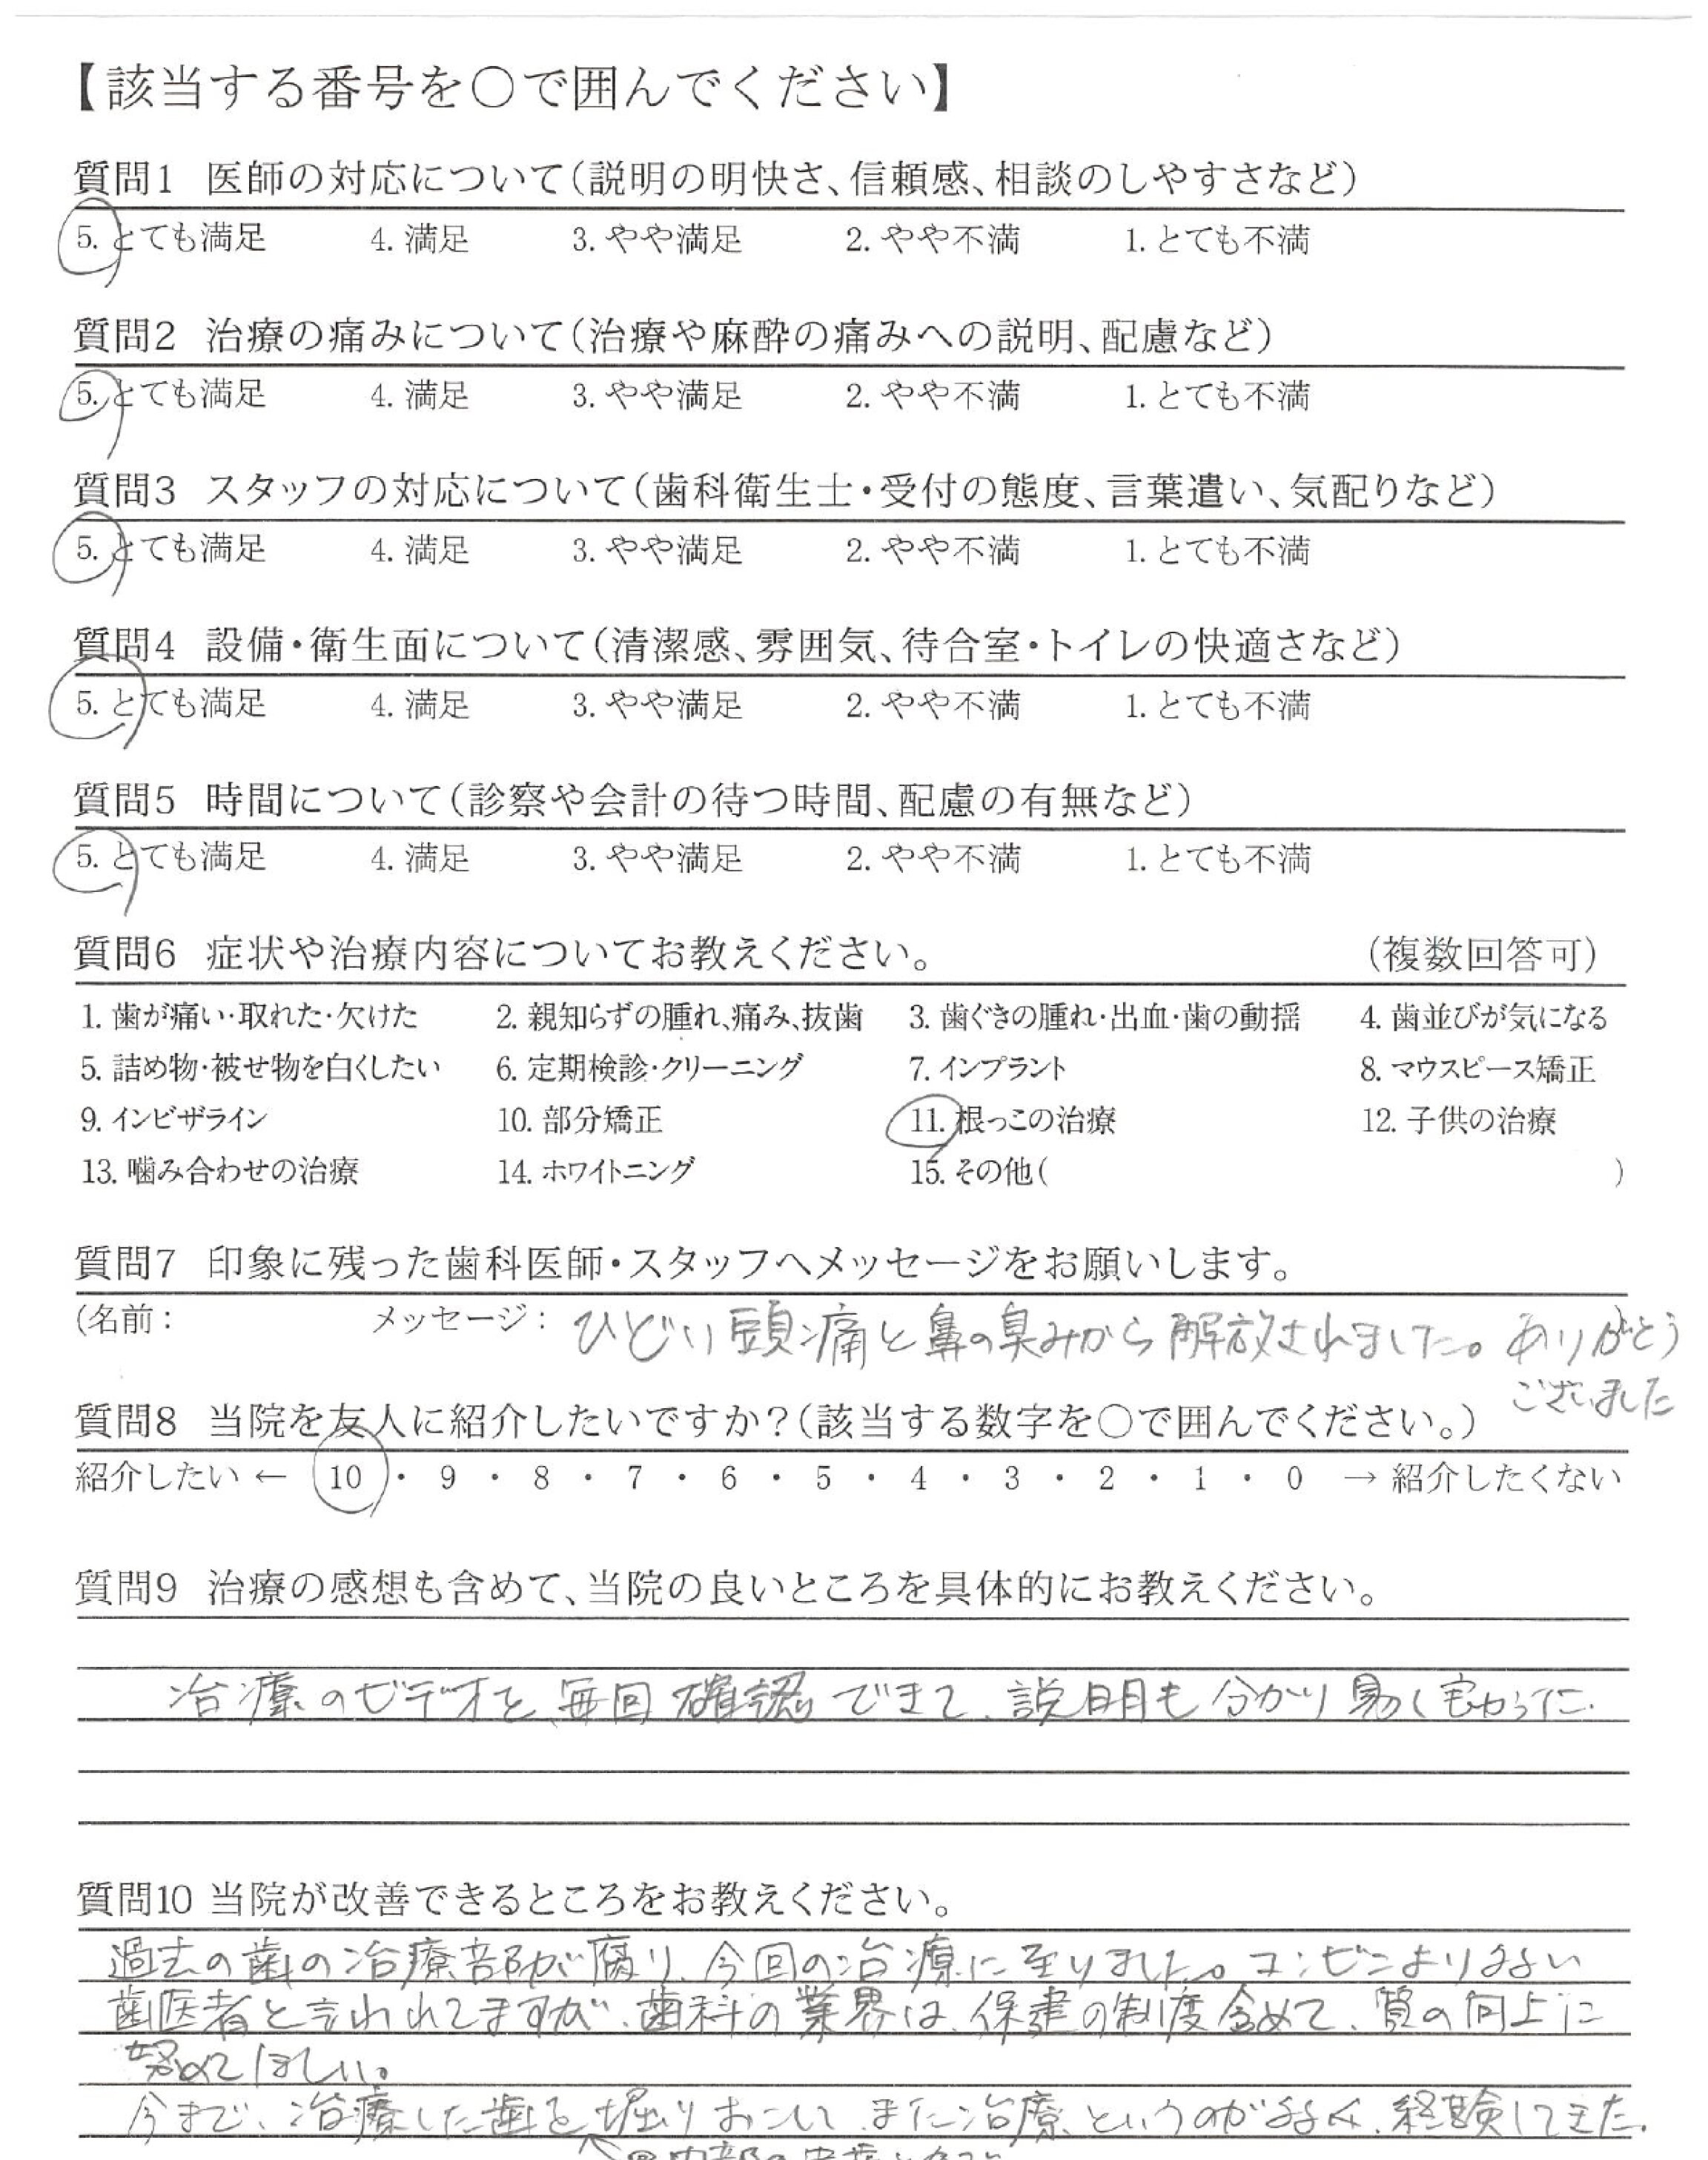 【該当する番号を○で囲んでください】
質問1 医師の対応について(説明の明快さ、信頼感、相談のしやすさなど)
5. とても満足 4. 満足 3. やや満足 2. やや不満 1. とても不満
質問2 治療の痛みについて(治療や麻酔の痛みへの説明、配慮など)
5. とても満足 4. 満足 3. やや満足 2. やや不満 1. とても不満
質問3 スタッフの対応について(歯科衛生士・受付の態度、言葉遣い、気配りなど)
5. とても満足 4. 満足 3. やや満足 2. やや不満 1. とても不満
質問4 設備・衛生面について(清潔感、雰囲気、待合室・トイレの快適さなど)
5. とても満足 4. 満足 3. やや満足 2. やや不満 1. とても不満
質問5 時間について(診察や会計の待つ時間、配慮の有無など)
5. とても満足 4. 満足 3. やや満足 2. やや不満 1. とても不満
質問6 症状や治療内容についてお教えください。 (複数回答可)
1. 歯が痛い・取れた・欠けた 2. 親知らずの腫れ、痛み、抜歯 3. 歯ぐきの腫れ・出血・歯の動揺 4. 歯並びが気になる
5. 詰め物・被せ物を白くしたい 6. 定期検診・クリーニング 7. インプラント 8. マウスピース矯正
9. インビザライン 10. 部分矯正 11. 根っこの治療 12. 子供の治療
13. 噛み合わせの治療 14. ホワイトニング 15. その他( )
質問7 印象に残った歯科医師・スタッフへメッセージをお願いします。
(名前: メッセージ: ひどい頭痛と鼻の臭みから解放されました。ありがとう
ございました
質問8 当院を友人に紹介したいですか?(該当する数字を○で囲んでください。)
紹介したい ← 10 ・ 9 ・ 8 ・ 7 ・ 6 ・ 5 ・ 4 ・ 3 ・ 2 ・ 1 ・ 0 → 紹介したくない
質問9 治療の感想も含めて、当院の良いところを具体的にお教えください。
治療のビデオを、毎回確認できて、説明も分かり易く
質問10 当院が改善できるところをお教えください。
過去の歯の治療部が腐り、今回の治療に至りました。コンビニより多い
歯医者と言われてますが、歯科の業界は、保健の制度含めて、質の向上に
努めてほしい。
今まで、治療した歯を掘りおこして、また治療、というのが多く、経験してきた。